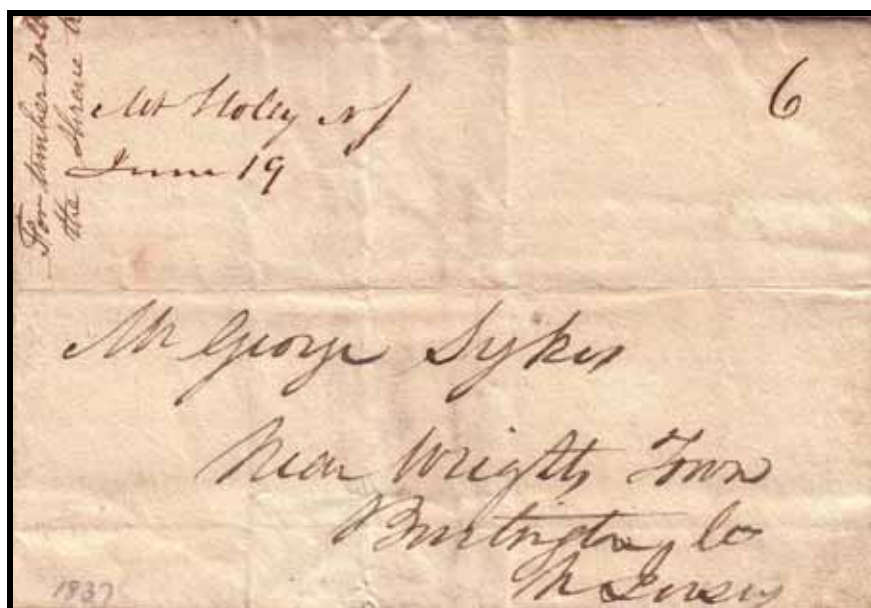 For timber sold
the throne
Mt Holly NJ
June 19
6
Mr George Sykes
Near Wrights Town
Burlington Co
N Jersey
1837